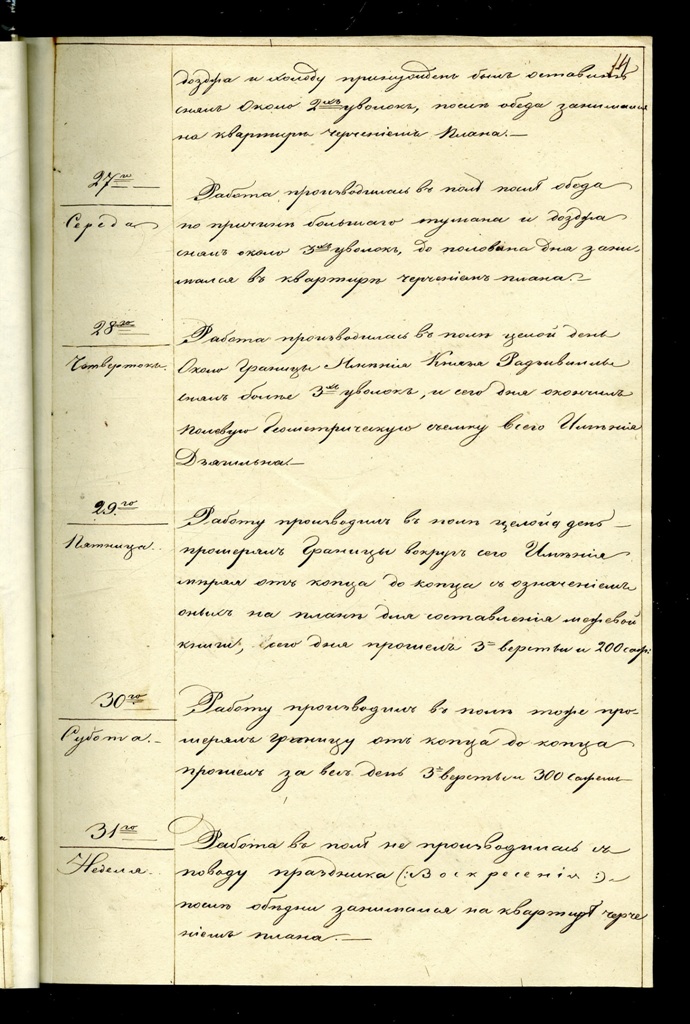 14
дождя и холоду принужденъ былъ оставить
снялъ около 2хъ уволокъ, послѣ обеда занимался
на квартирѣ черченіемъ плана. —
27го
Середа
Работа производилась въ полѣ послѣ обода
по причинѣ большаго тумана и дождя
снялъ около 3хъ уволокъ, до половина дня зани-
мался въ квартирѣ черченіемъ плана. —
28го
Чєтвертокъ.
Работа производилась въ полѣ целой день
около границы Имѣнія Князя Радзивиллы
снялъ болѣе 3хъ уволокъ, и сего дня окончилъ
полевую Геометрическую съемку всего Имѣнія
Дзячильна. —
29.го
Пятница.
Работу производилъ въ полѣ целой день —
промерялъ границы вокругъ сего Имѣнія
мѣряя отъ копца до копца съ означеніемъ
оныхъ на планѣ для составленія межевой
книги, сего дня прошелъ 3 версты и 200 саж:
30го
Субота. —
Работу производилъ въ полѣ тоже про-
мерялъ границу отъ копца до копца
прошелъ за весь день 3 версты и 300 сажень
31го
Неделя.
Работа въ полѣ не производилась съ
поводу праздника (: Воскресенія :) —
послѣ обѣдни занимался на квартирѣ черче
ніемъ плана. —